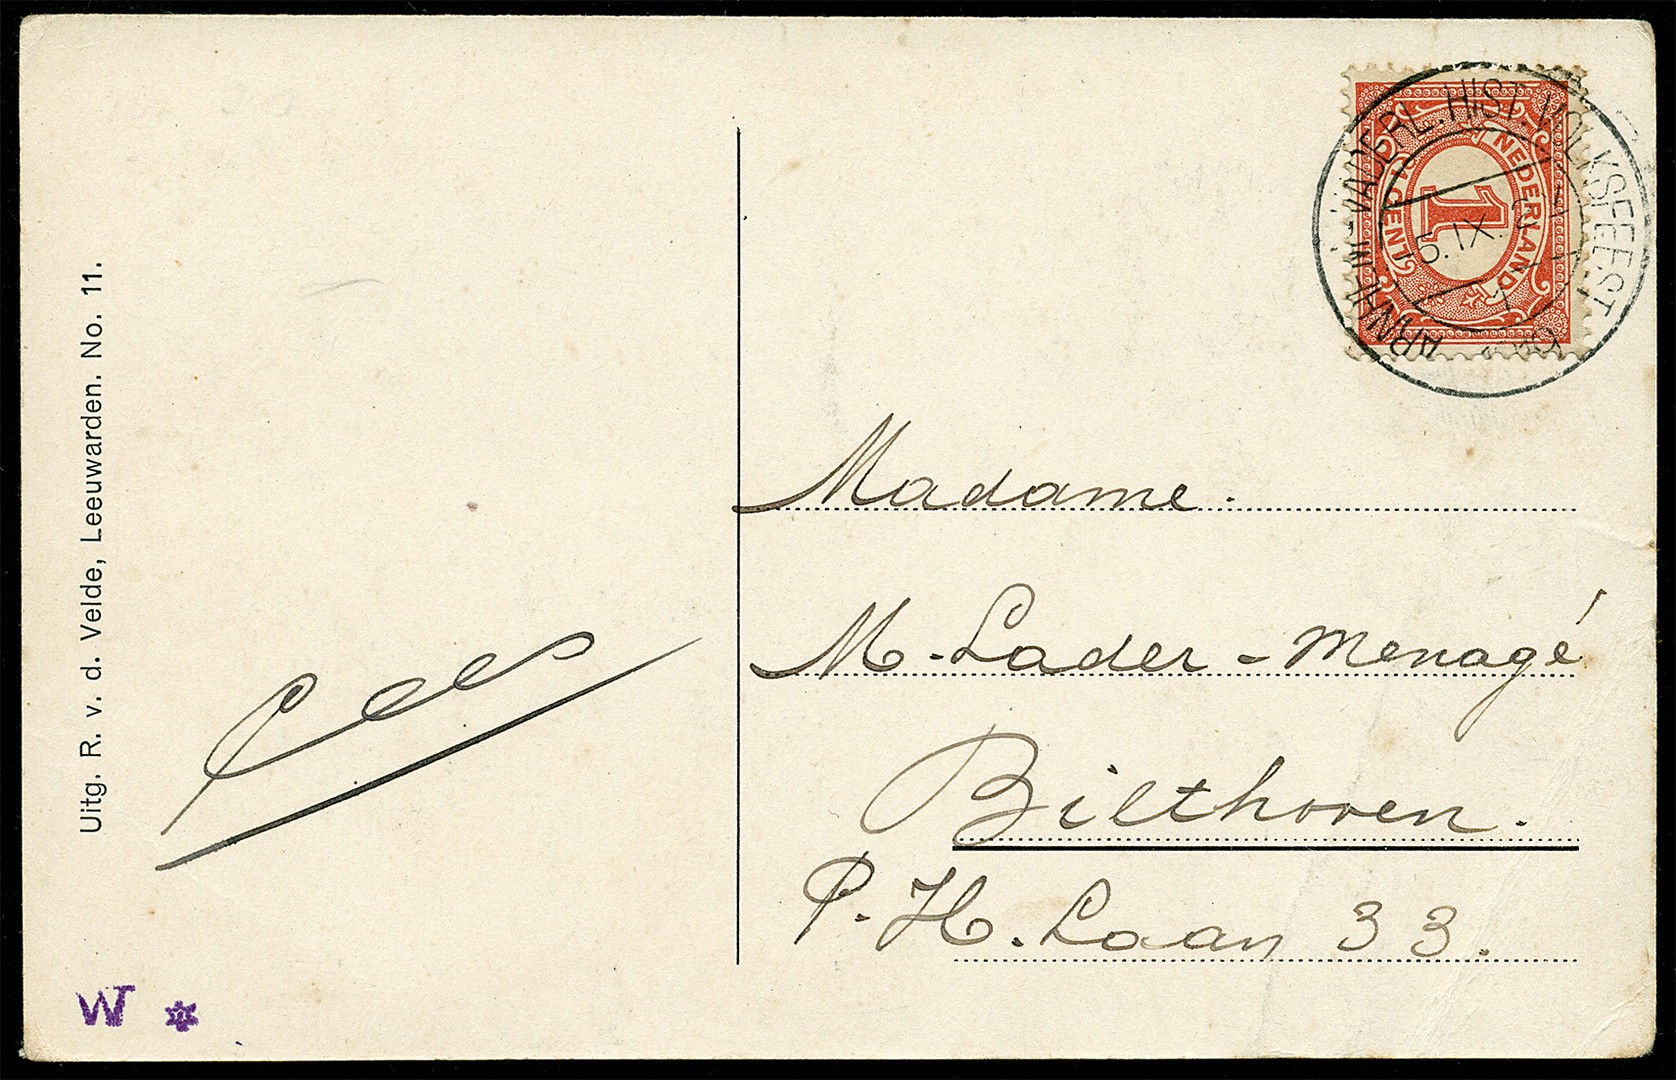 Uitg. R. v. d. Velde, Leeuwarden. No. 11.
ARNHEM-VADERL. HIST. VOLKSFEEST
5.IX
NEDERLAND
1
1 CENT
Madame.
M. Lader - Menagé
Bilthoven.
P. H. Laan 33.
W